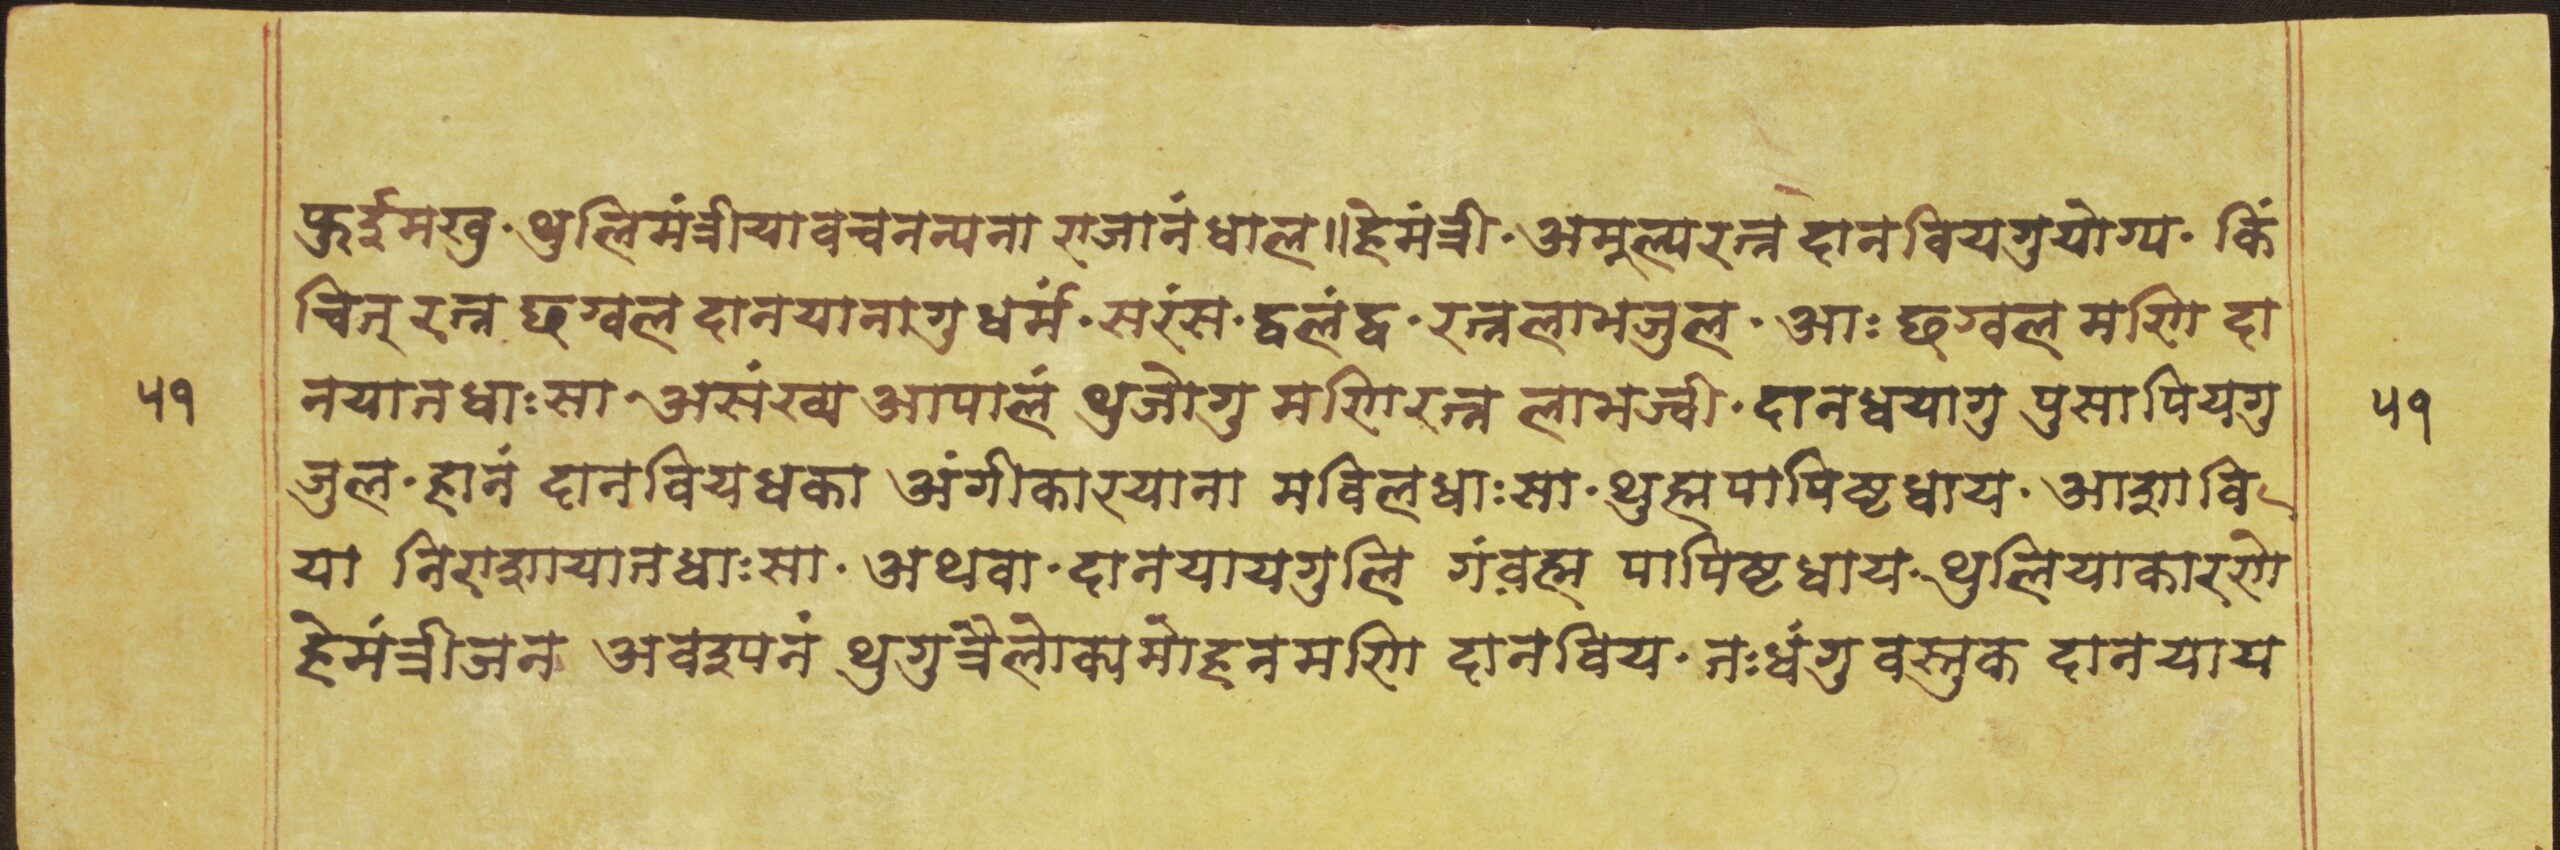 फुर्इमखु· थुलिमंत्रीयावचनन्यना राजानंधाल॥हेमंत्री· अमूल्यरत्न दानवियगुयोग्य· किं
चित् रत्न छग्वल दानयानागु धर्मं· सरंस· द्वलंद्व· रत्नलाभजुल· आः छग्वल मणि दा
नयानधाःसा· असंख्य आपालं थुजोगु मणिरत्न लाभज्वी· दानध्वयागु पुसापियगु
५१
५१
जुल· हानं दानवियधका अंगीकारयाना मविलधाःसा· थुह्मपापिष्टधाय· आशावि
या निराशायानधाःसा· अथवा· दानयायगुलि गंवह्म पापिष्टधाय· थुलियाकारणे
हेमंत्रीजन अवश्यनं थुगुत्रैलोक्यमोहनमणि दानविय· नःधंगु वस्तुक दानयाय